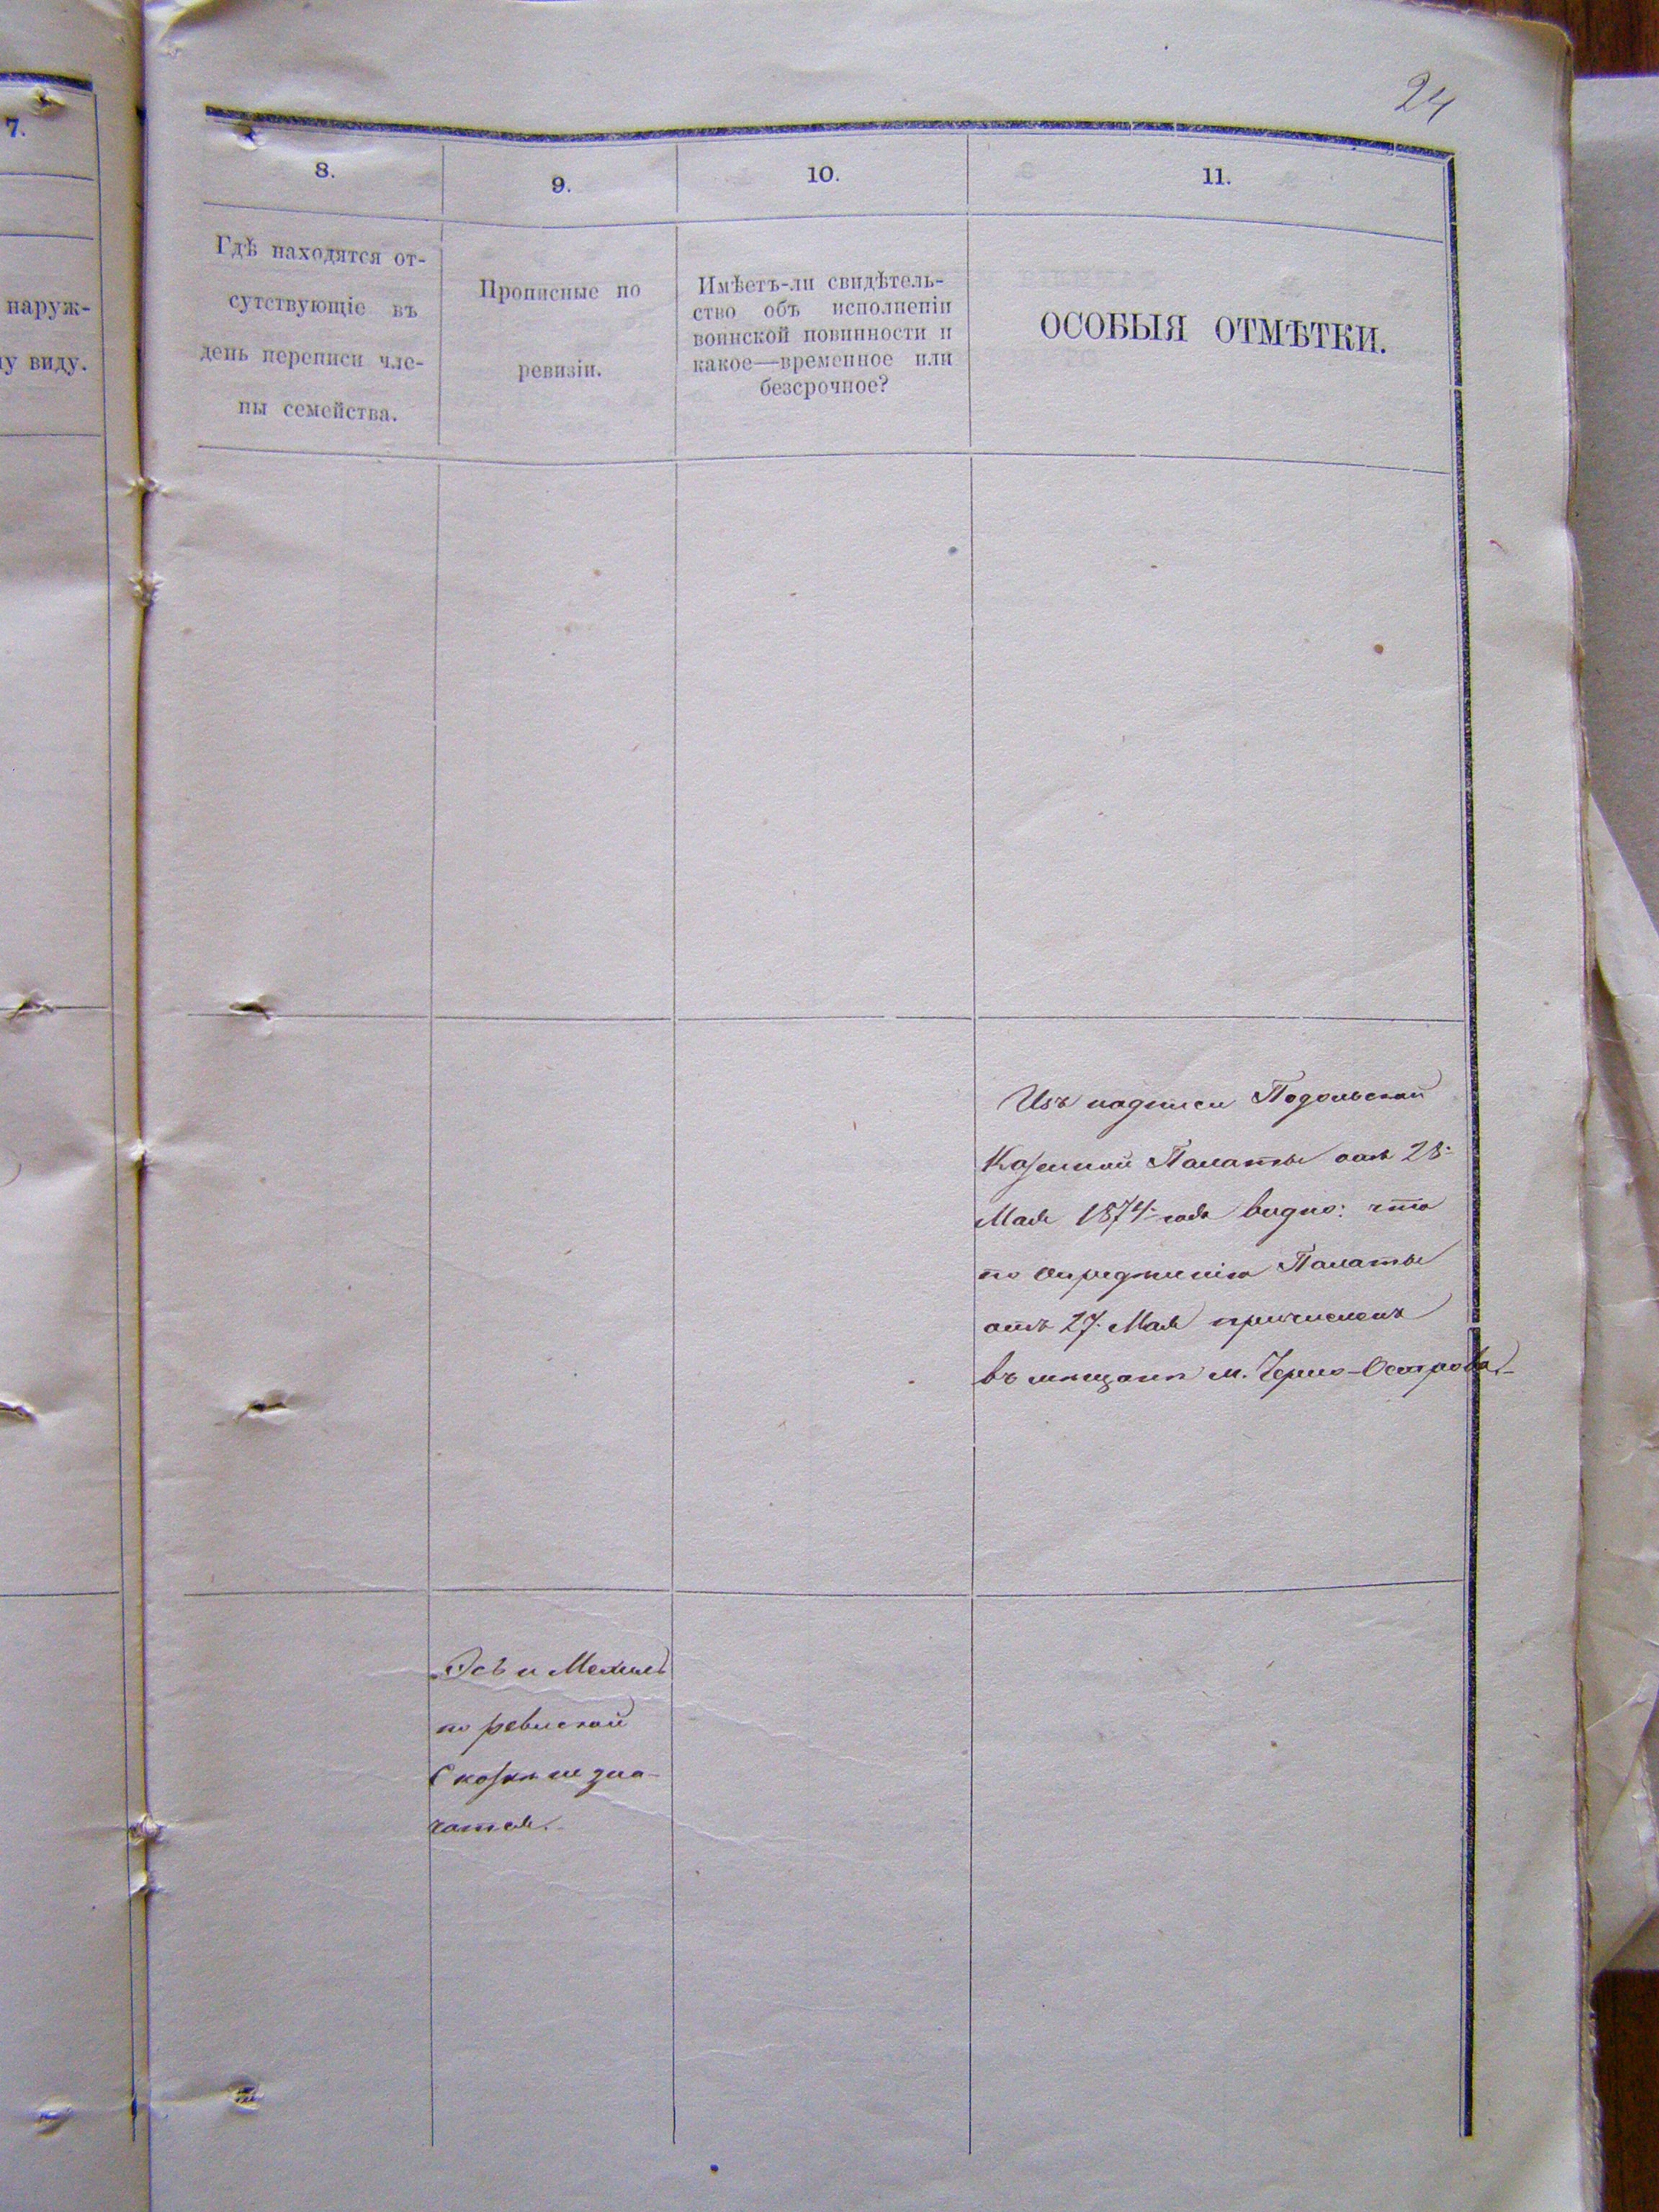 24
7.
наруж-
у виду.
8.
9.
10.
11.
Гдѣ находятся от-
сутствующіе въ
день переписи чле-
ны семейства.
Прописные по
ревизіи.
Имѣетъ-ли свидѣтель-
ство объ исполненіи
воинской повинности и
какое—временное или
безсрочное?
ОСОБЫЯ ОТМѢТКИ.
Изъ надписи Подольской
Казенной Палаты отъ 28
Мая 1874 года видно: что
по опредѣленію Палаты
отъ 27 Мая причисленъ
въ мѣщане м. Черно-Острова.
и Мехиль
по ревизской
Сказкѣ не зна-
чатся.